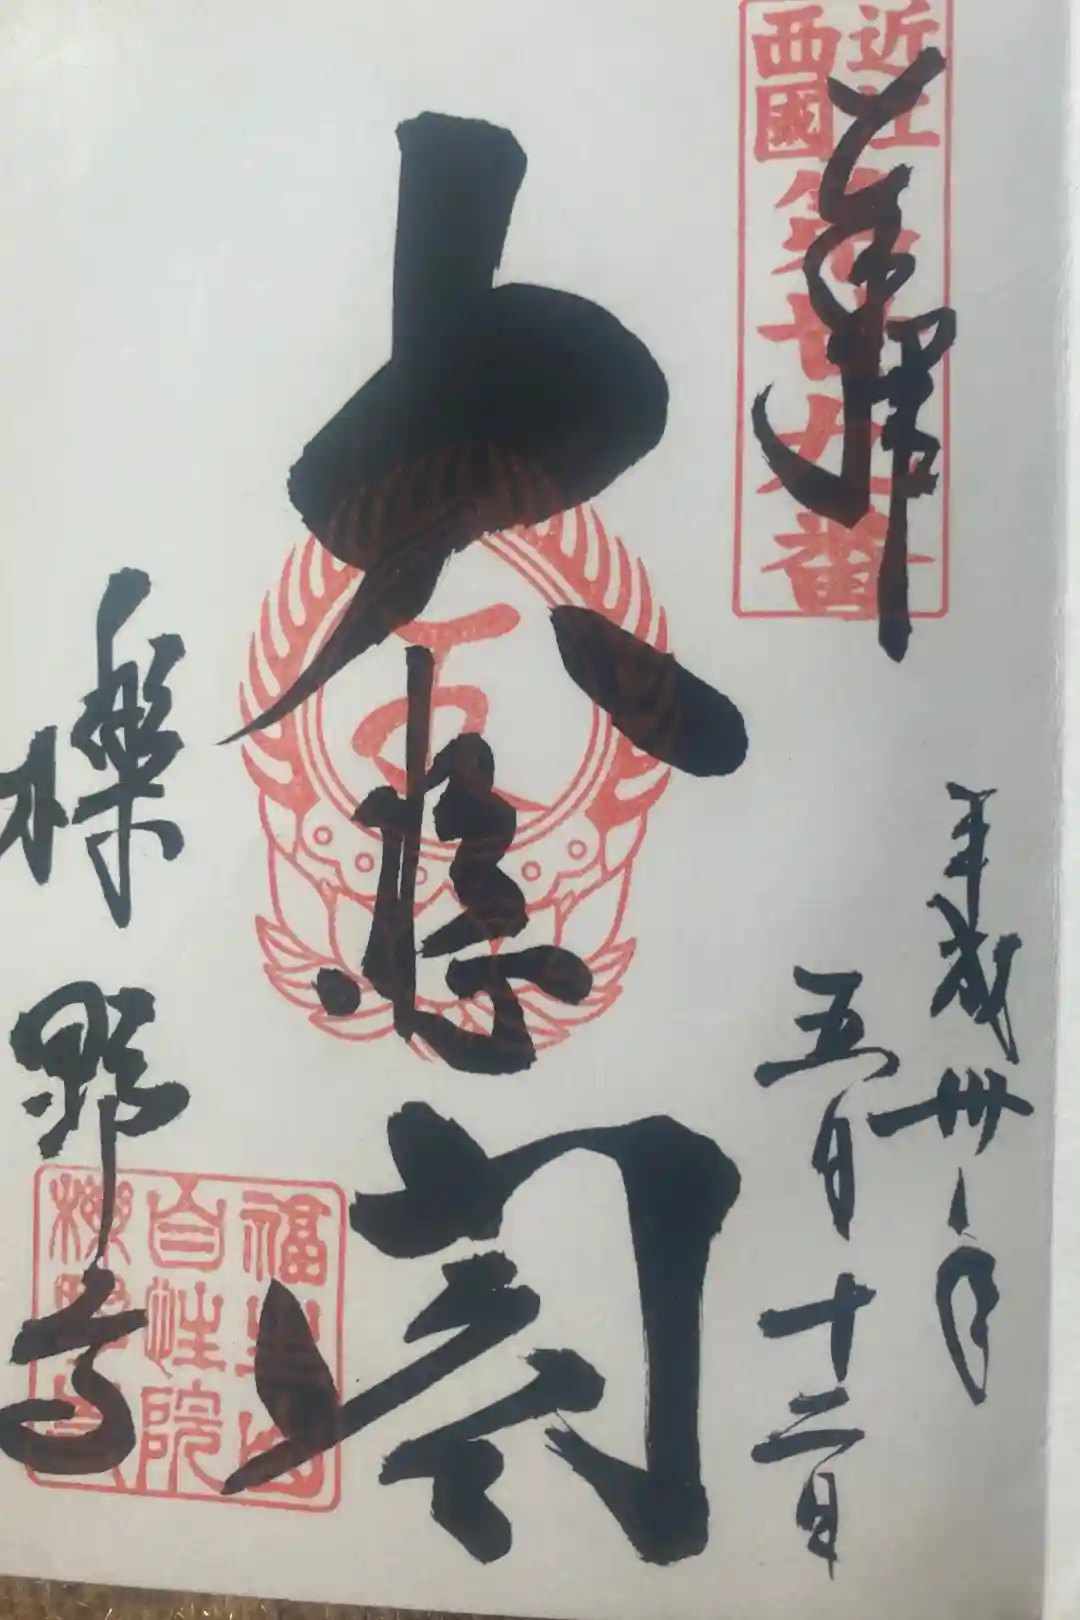 近江
西國
第廿九番
奉拝
平成卅年
五月十二日
大悲閣
櫟野寺
福生山
自性院
櫟野寺